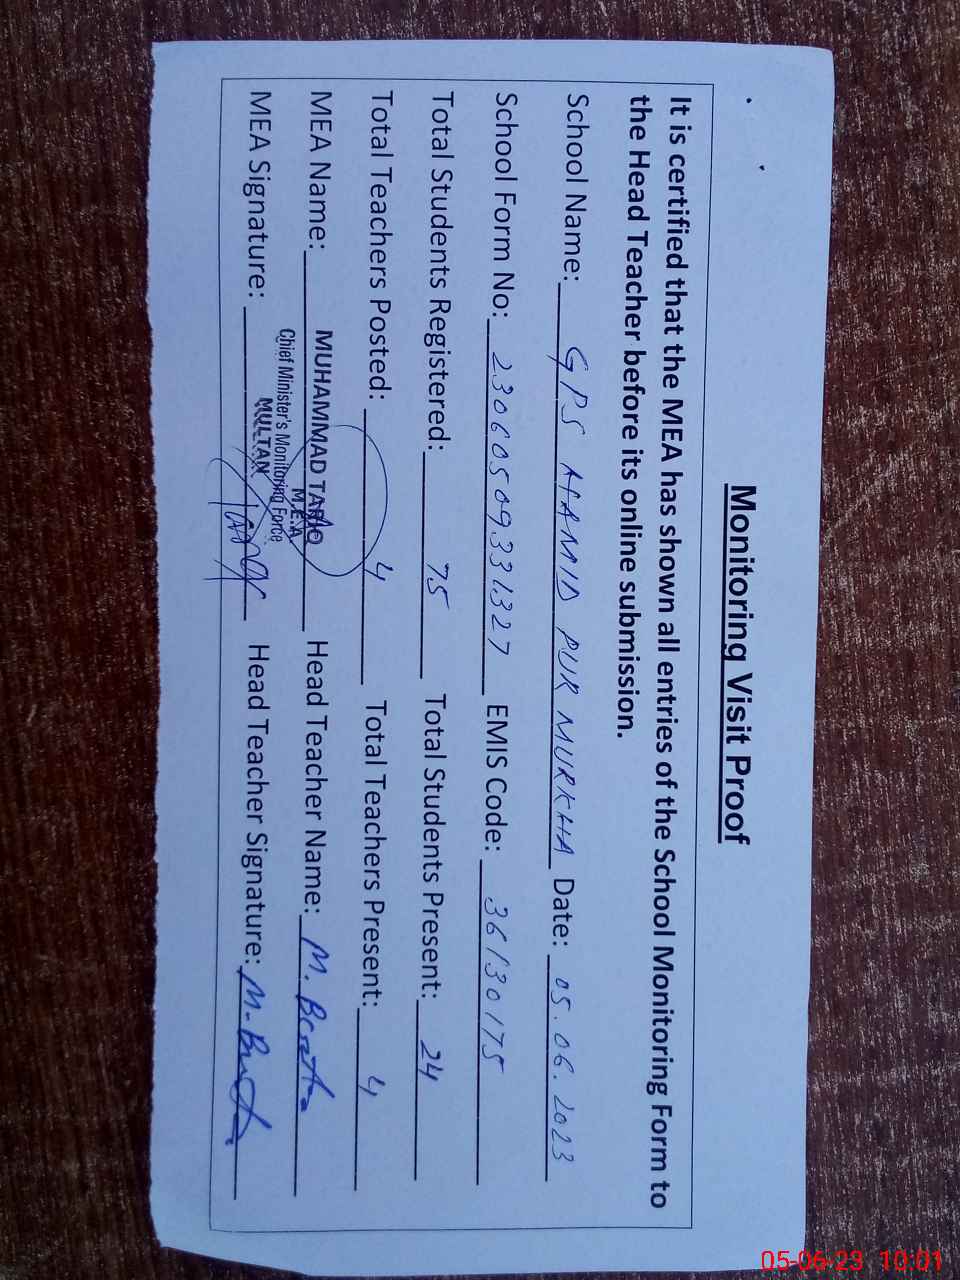 Monitoring Visit Proof
It is certified that the MEA has shown all entries of the School Monitoring Form to
the Head Teacher before its online submission.
School Name: GPS HAMID PUR MURKHA Date: 05.06.2023
School Form No: 23060509331327 EMIS Code: 36130175
Total Students Registered: 75 Total Students Present: 24
Total Teachers Posted: 4 Total Teachers Present: 4
MEA Name: MUHAMMAD TARIQ Head Teacher Name: M.
M.E.A
Chief Minister's Monitoring Force
MULTAN
MEA Signature: Head Teacher Signature: M.
05-06-23 10:01